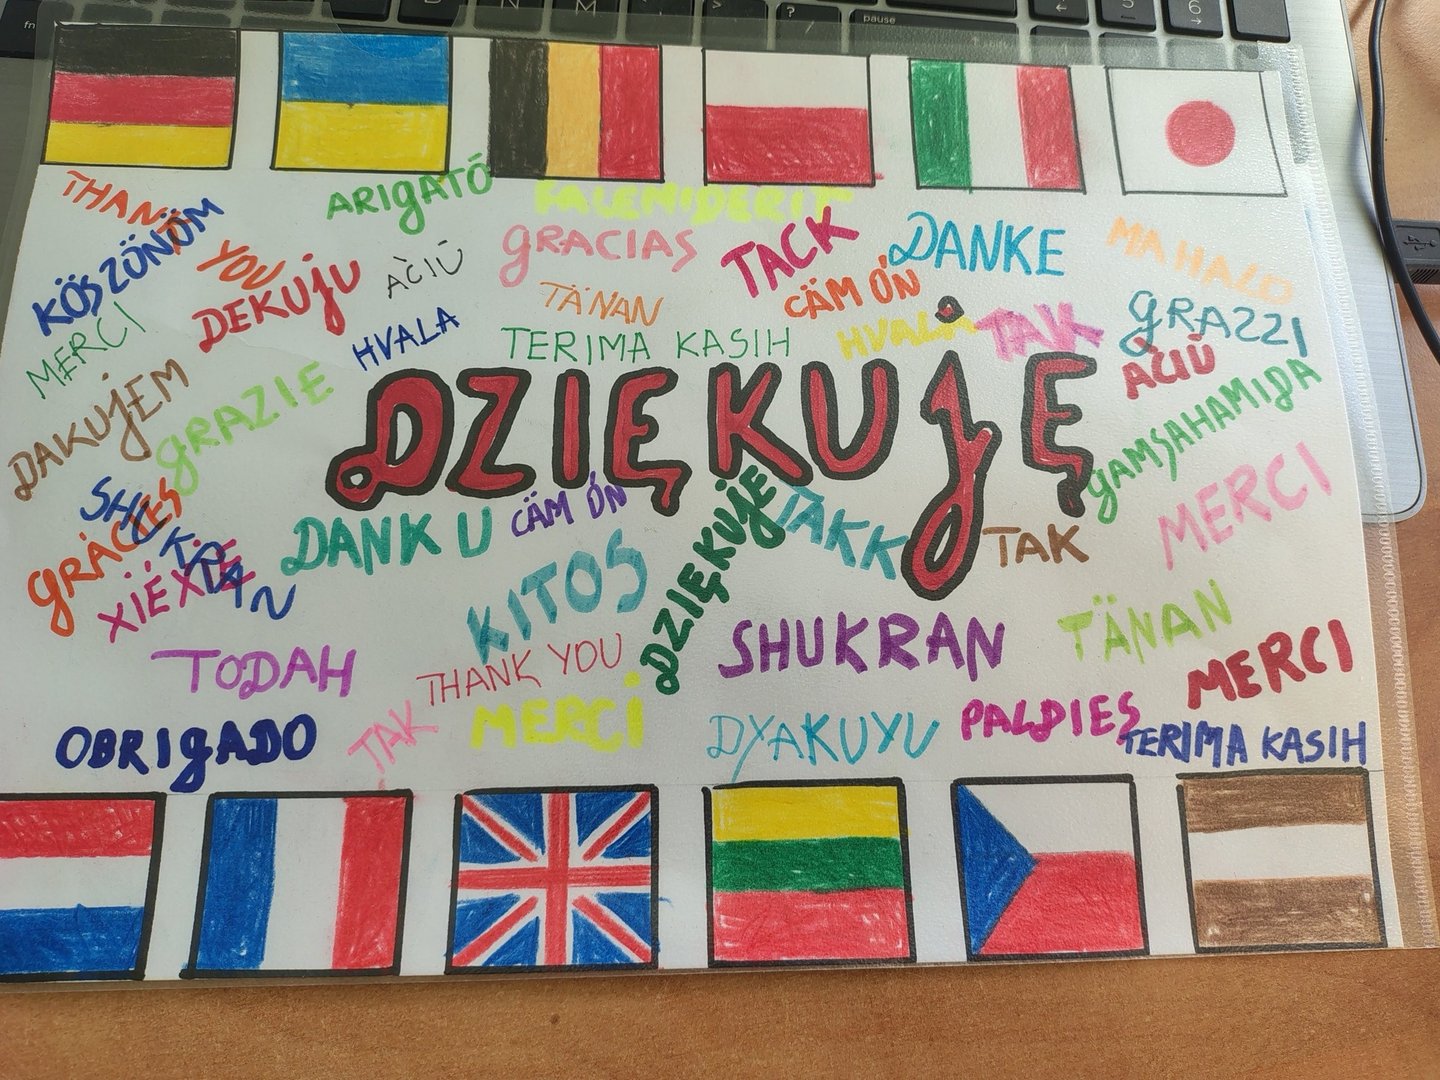 fn
B
N
M
>
?
pause
5
6
THANK
YOU
ARIGATÓ
FALEMIDERIT
KÖSZÖNÖM
GRACIAS
TACK
DANKE
MAHALO
DEKUJU
AČIŪ
TÄNAN
CÁM ÓN
GRAZZI
MERCI
HVALA
TERIMA KASIH
HVALA
TAK
AČIŪ
DAKUJEM
GRAZIE
DZIĘKUJĘ
GAMSAHAMIDA
SHUKRAN
GRÁCIES
DANK U
CÄM ÓN
DZIĘKUJĘ
TAKK
TAK
MERCI
XIÉXIE
KITOS
TODAH
THANK YOU
SHUKRAN
TÄNAN
MERCI
OBRIGADO
TAK
MERCI
DYAKUYU
PALDIES
TERIMA KASIH